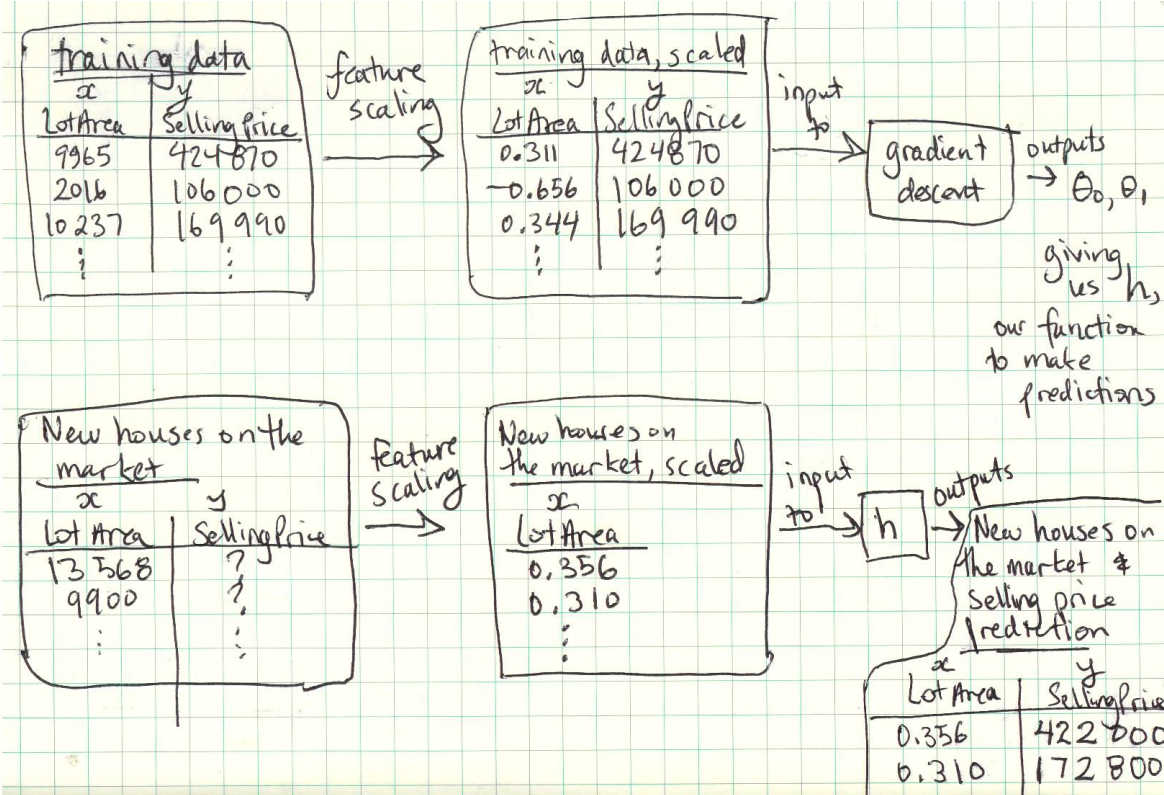 training data
x y
LotArea SellingPrice
9965 424870
2016 106000
10237 169990
feature
scaling
training data, scaled
x y
LotArea SellingPrice
0.311 424870
-0.656 106000
0.344 169990
input
to
gradient
descent
outputs
θ₀, θ₁
giving
us h,
our function
to make
predictions
New houses on the
market
x y
Lot Area SellingPrice
13568 ?
9900 ?
feature
scaling
New houses on
the market, scaled
x
LotArea
0.356
0.310
input
to
h
outputs
New houses on
the market &
selling price
prediction
x y
Lot Area SellingPrice
0.356 422 000
0.310 172 800